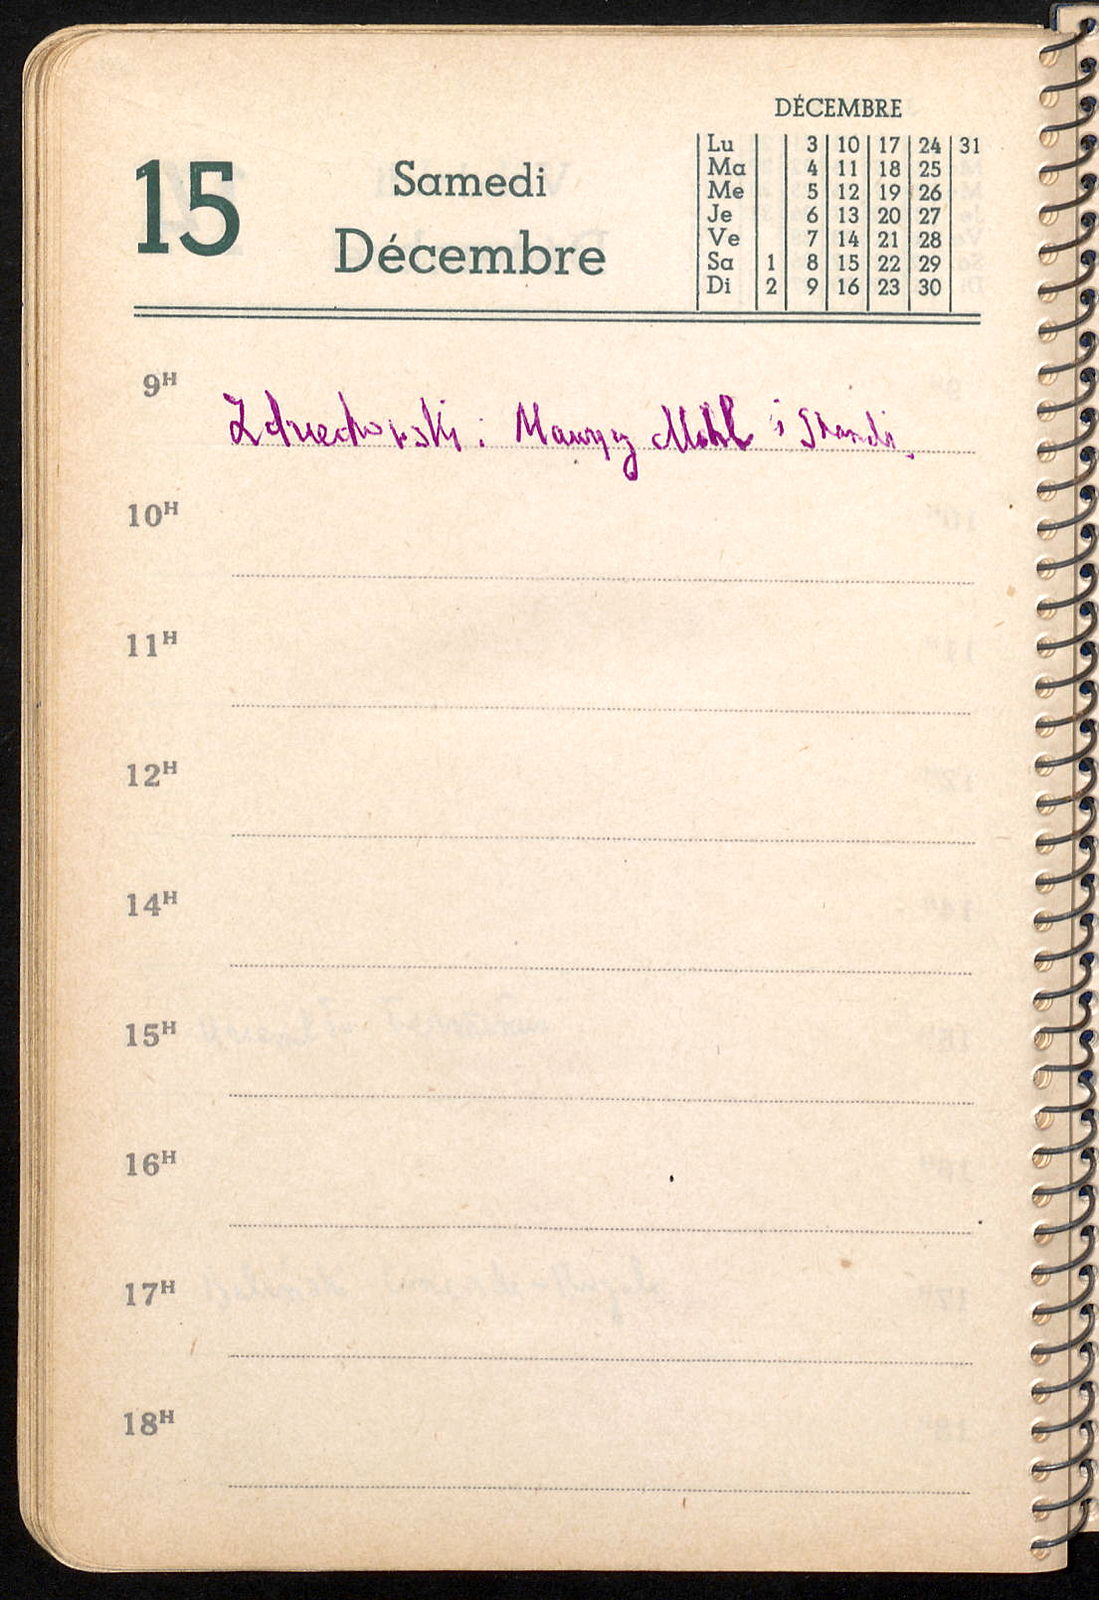 DÉCEMBRE
15
Samedi
Décembre
Lu 3 10 17 24 31
Ma 4 11 18 25
Me 5 12 19 26
Je 6 13 20 27
Ve 7 14 21 28
Sa 1 8 15 22 29
Di 2 9 16 23 30
9H
Zdziechowski: Maurycy i
10H
11H
12H
14H
15H
16H
17H
18H